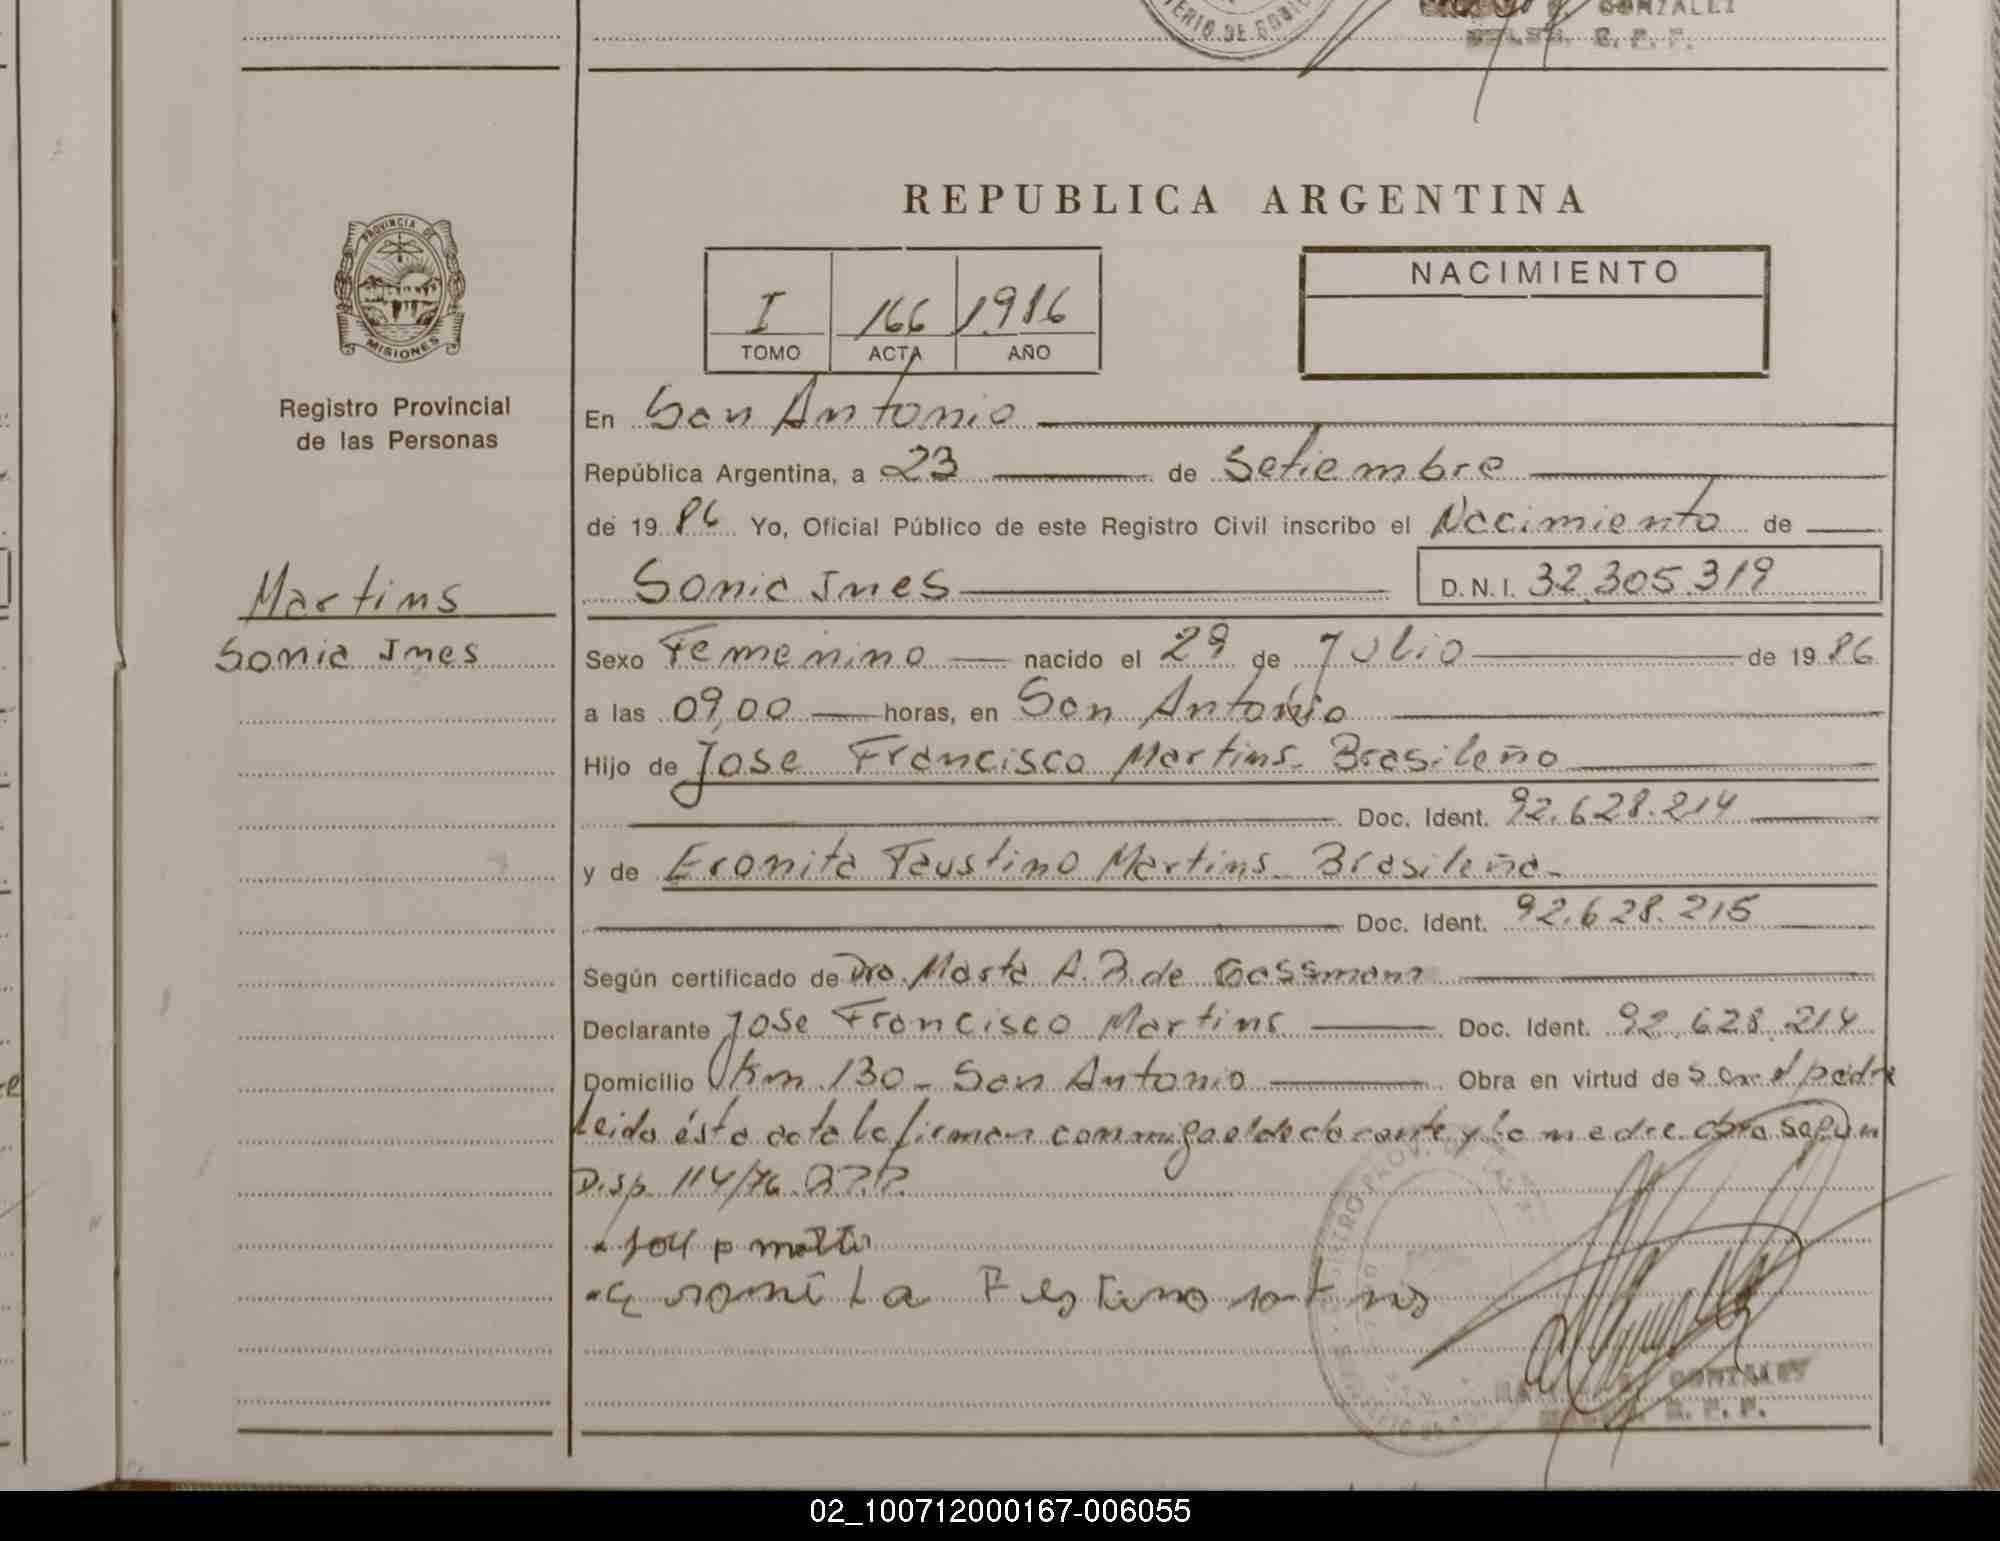 GONZALEZ
R. P. P.
REPUBLICA ARGENTINA
PROVINCIA DE
MISIONES
Registro Provincial
de las Personas
I 166 1986
TOMO ACTA AÑO
NACIMIENTO
Martins
Sonia Ines
En San Antonio
República Argentina, a 23 de Setiembre
de 1986 Yo, Oficial Público de este Registro Civil inscribo el Nacimiento de
Sonia Ines D.N.I. 32.305.319
Sexo Femenino nacido el 29 de Julio de 1986
a las 09,00 horas, en San Antonio
Hijo de Jose Francisco Martins - Brasileño
Doc. Ident. 92.628.214
y de Eronita Faustino Martins - Brasileña -
Doc. Ident. 92.628.215
Según certificado de Dra. Marta A. B. de Gassmann
Declarante Jose Francisco Martins Doc. Ident. 92.628.214
Domicilio Km 130 - San Antonio Obra en virtud de Ser el padre
leida ésta acta la firman conmigo el declarante y la madre obra según
Disp. 114/76 R.P.P.
GONZALEZ
R. P. P.
02_100712000167-006055